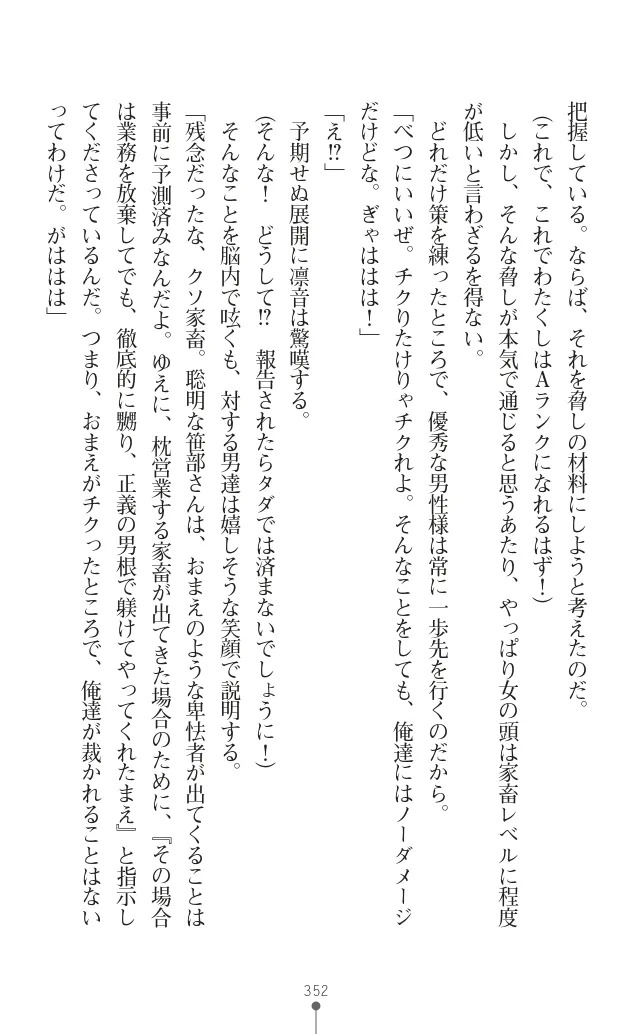 把握している。ならば、それを脅しの材料にしようと考えたのだ。
（これで、これでわたくしはＡランクになれるはず！）
　しかし、そんな脅しが本気で通じると思うあたり、やっぱり女の頭は家畜レベルに程度
が低いと言わざるを得ない。
　どれだけ策を練ったところで、優秀な男性様は常に一歩先を行くのだから。
「べつにいいぜ。チクりたけりゃチクれよ。そんなことをしても、俺達にはノーダメージ
だけどな。ぎゃははは！」
「え⁉」
　予期せぬ展開に凛音は驚嘆する。
（そんな！　どうして⁉　報告されたらタダでは済まないでしょうに！）
　そんなことを脳内で呟くも、対する男達は嬉しそうな笑顔で説明する。
「残念だったな、クソ家畜。聡明な笹部さんは、おまえのような卑怯者が出てくることは
事前に予測済みなんだよ。ゆえに、枕営業する家畜が出てきた場合のために、『その場合
は業務を放棄してでも、徹底的に嬲り、正義の男根で躾けてやってくれたまえ』と指示し
てくださっているんだ。つまり、おまえがチクったところで、俺達が裁かれることはない
ってわけだ。がははは」
352